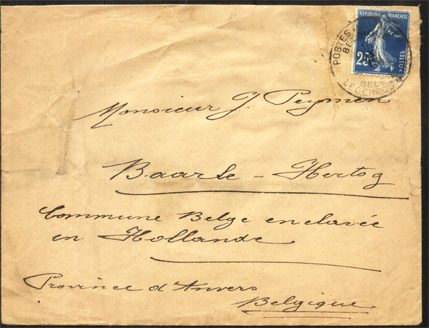 REPUBLIQUE FRANÇAISE
25
POSTES
POSTES
Monsieur J. Peymen
Baarle-Hertog
Commune Belge enclavée
en Hollande
Province d'Anvers
Belgique